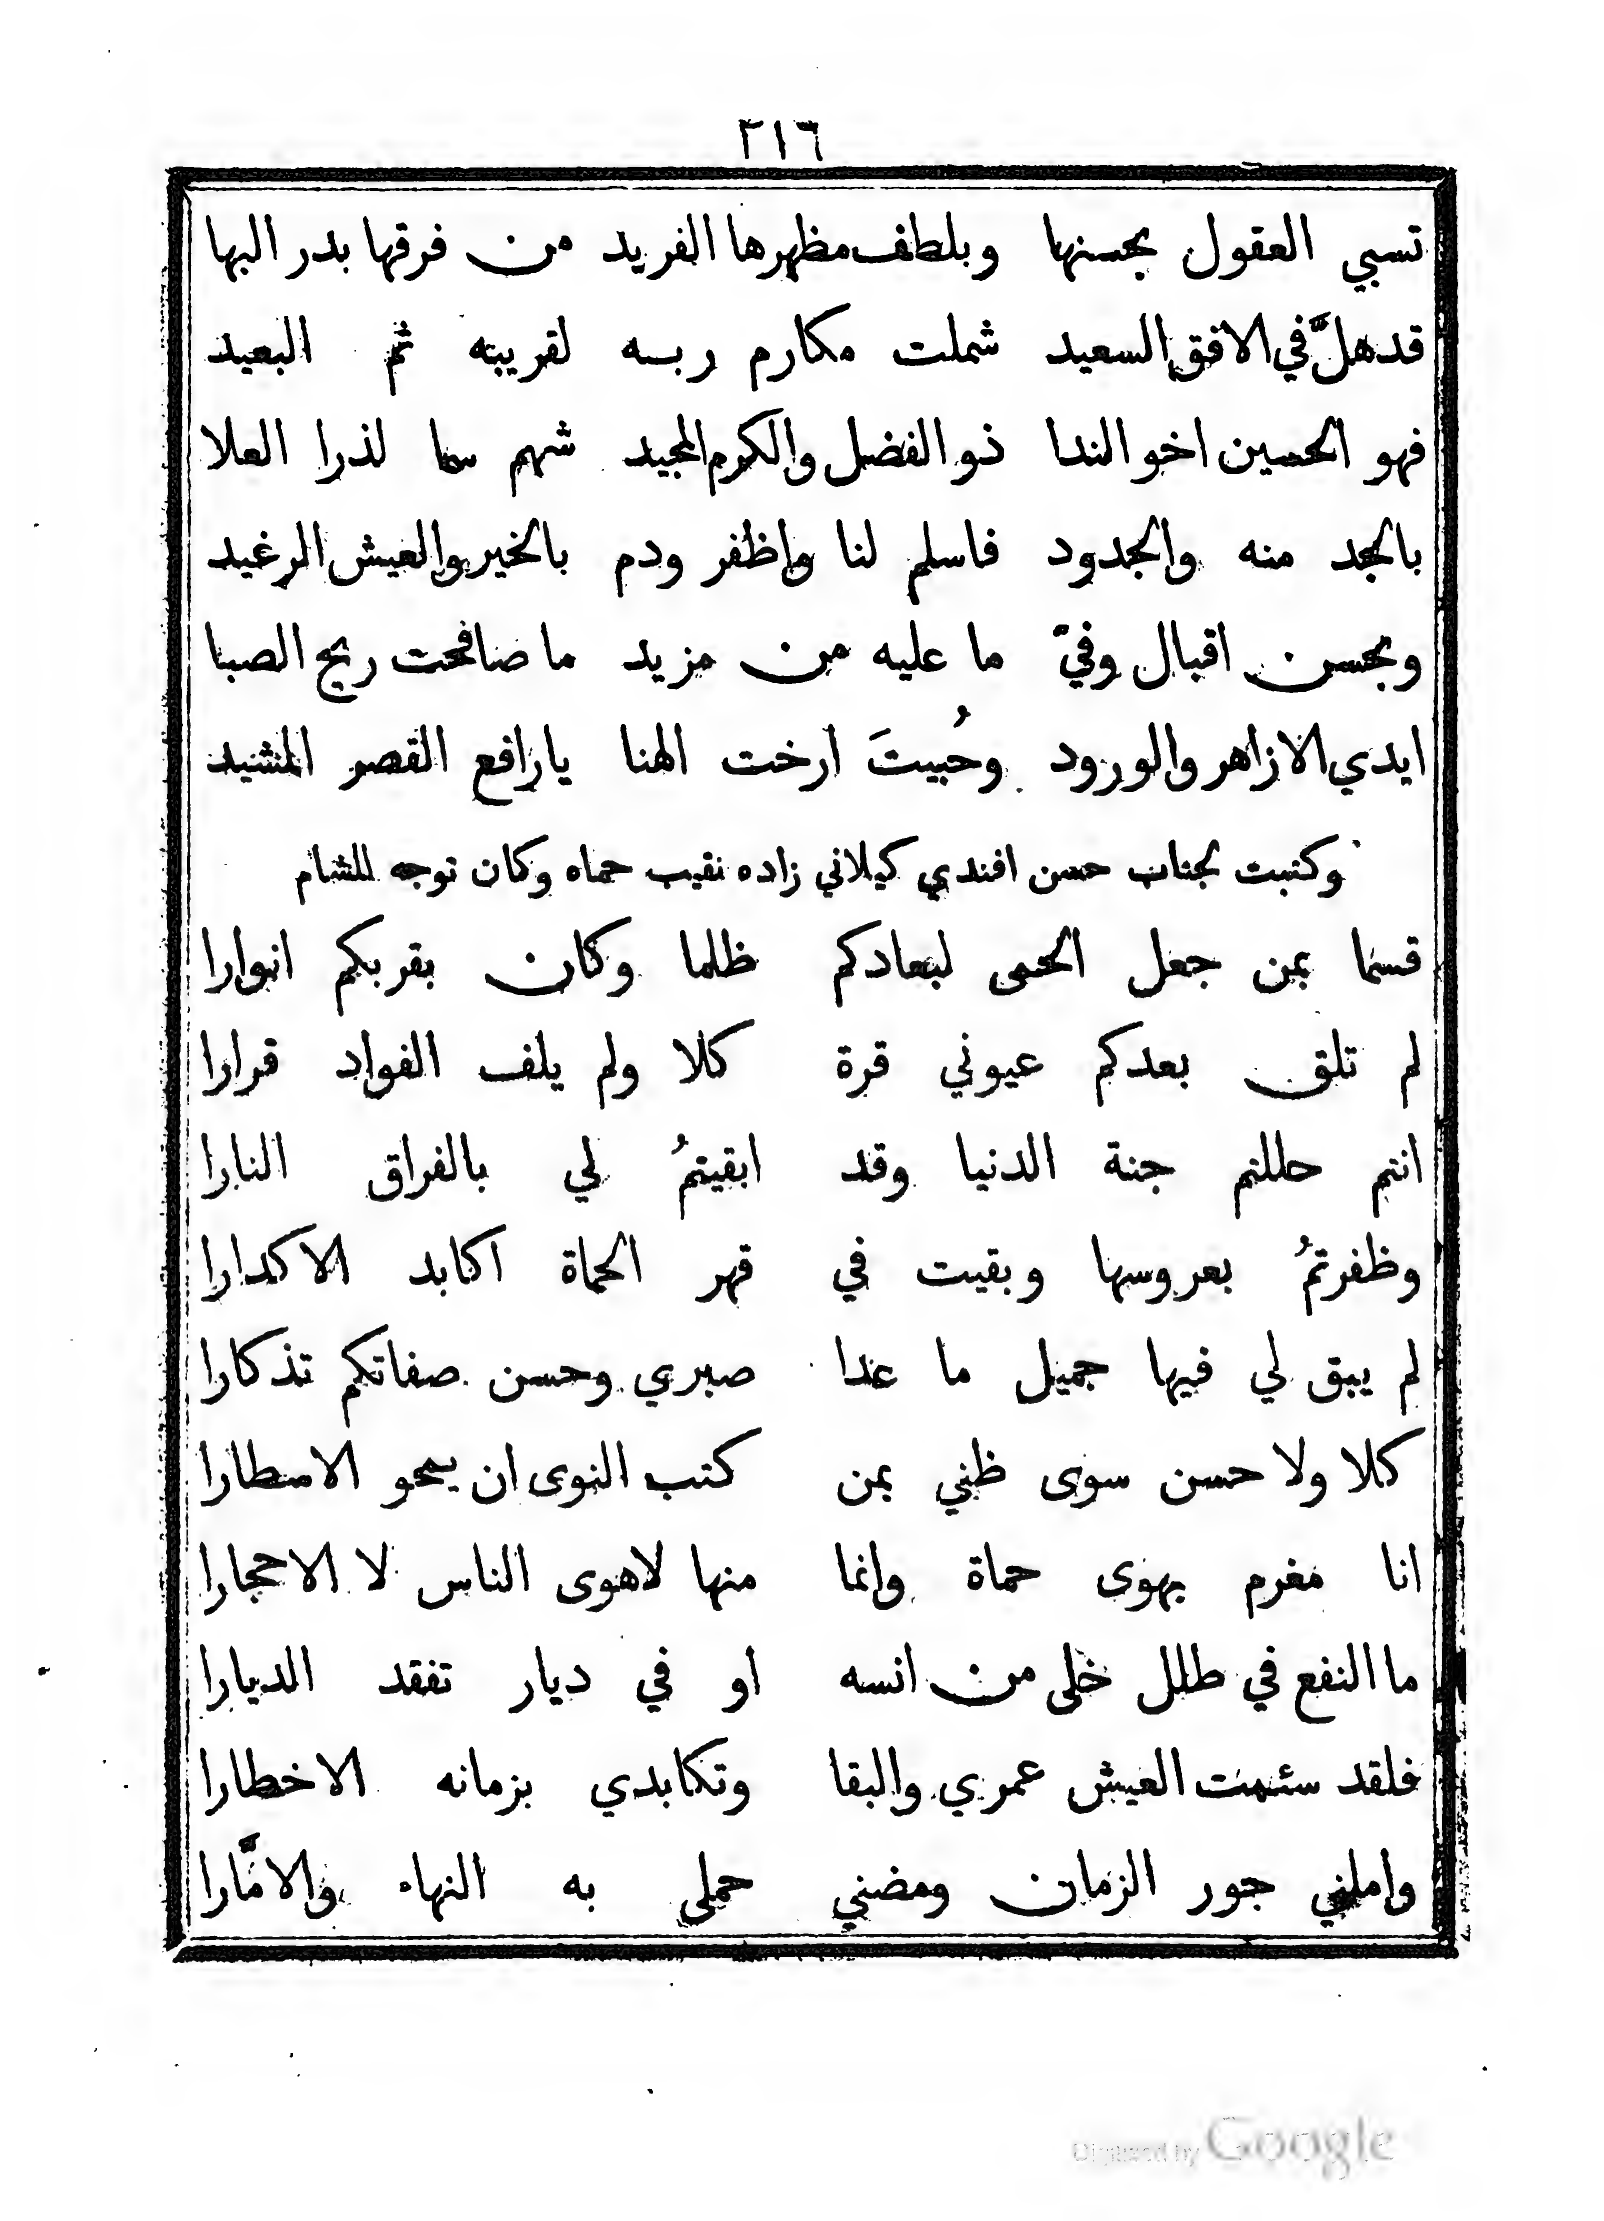 ٢١٦
تسبي العقول بحسنها وبلطف مظهرها الفريد من فرقها بدر البها
قد هلَّ في الافق السعيد شملت مكارم ربه لقريبه ثم البعيد
فهو الحسين اخو الندا ذو الفضل والكرم المجيد شهم سما لذرا العلا
بالجد منه والجدود فاسلم لنا واظفر ودم بالخير والعيش الرغيد
وبحسن اقبال وفيّ ما عليه من مزيد ما صافحت ريح الصبا
ايدي الازاهر والورود وحُبيتَ ارخت الهنا يارافع القصر المشيد
وكتبت لجناب حسن افندي كيلاني زاده نقيب حماه وكان توجه للشام
قسما بمن جعل الحمى لبعادكم ظلما وكان بقربكم انوارا
لم تلق بعدكم عيوني قرة كلا ولم يلف الفواد قرارا
انتم حللتم جنة الدنيا وقد ابقيتمُ لي بالفراق النارا
وظفرتمُ بعروسها وبقيت في قهر الحماة اكابد الاكدارا
لم يبق لي فيها جميل ما عدا صبري وحسن صفاتكم تذكارا
كلا ولا حسن سوى ظني بمن كتب النوى ان يمحو الاسطارا
انا مغرم بهوى حماة وانما منها لاهوى الناس لا الاحجارا
ما النفع في طلل خلى من انسه او في ديار تفقد الديارا
فلقد سئمت العيش عمري والبقا وتكابدي بزمانه الاخطارا
واملني جور الزمان ومضني حملي به النهاء والامَّارا
Digitized by Google